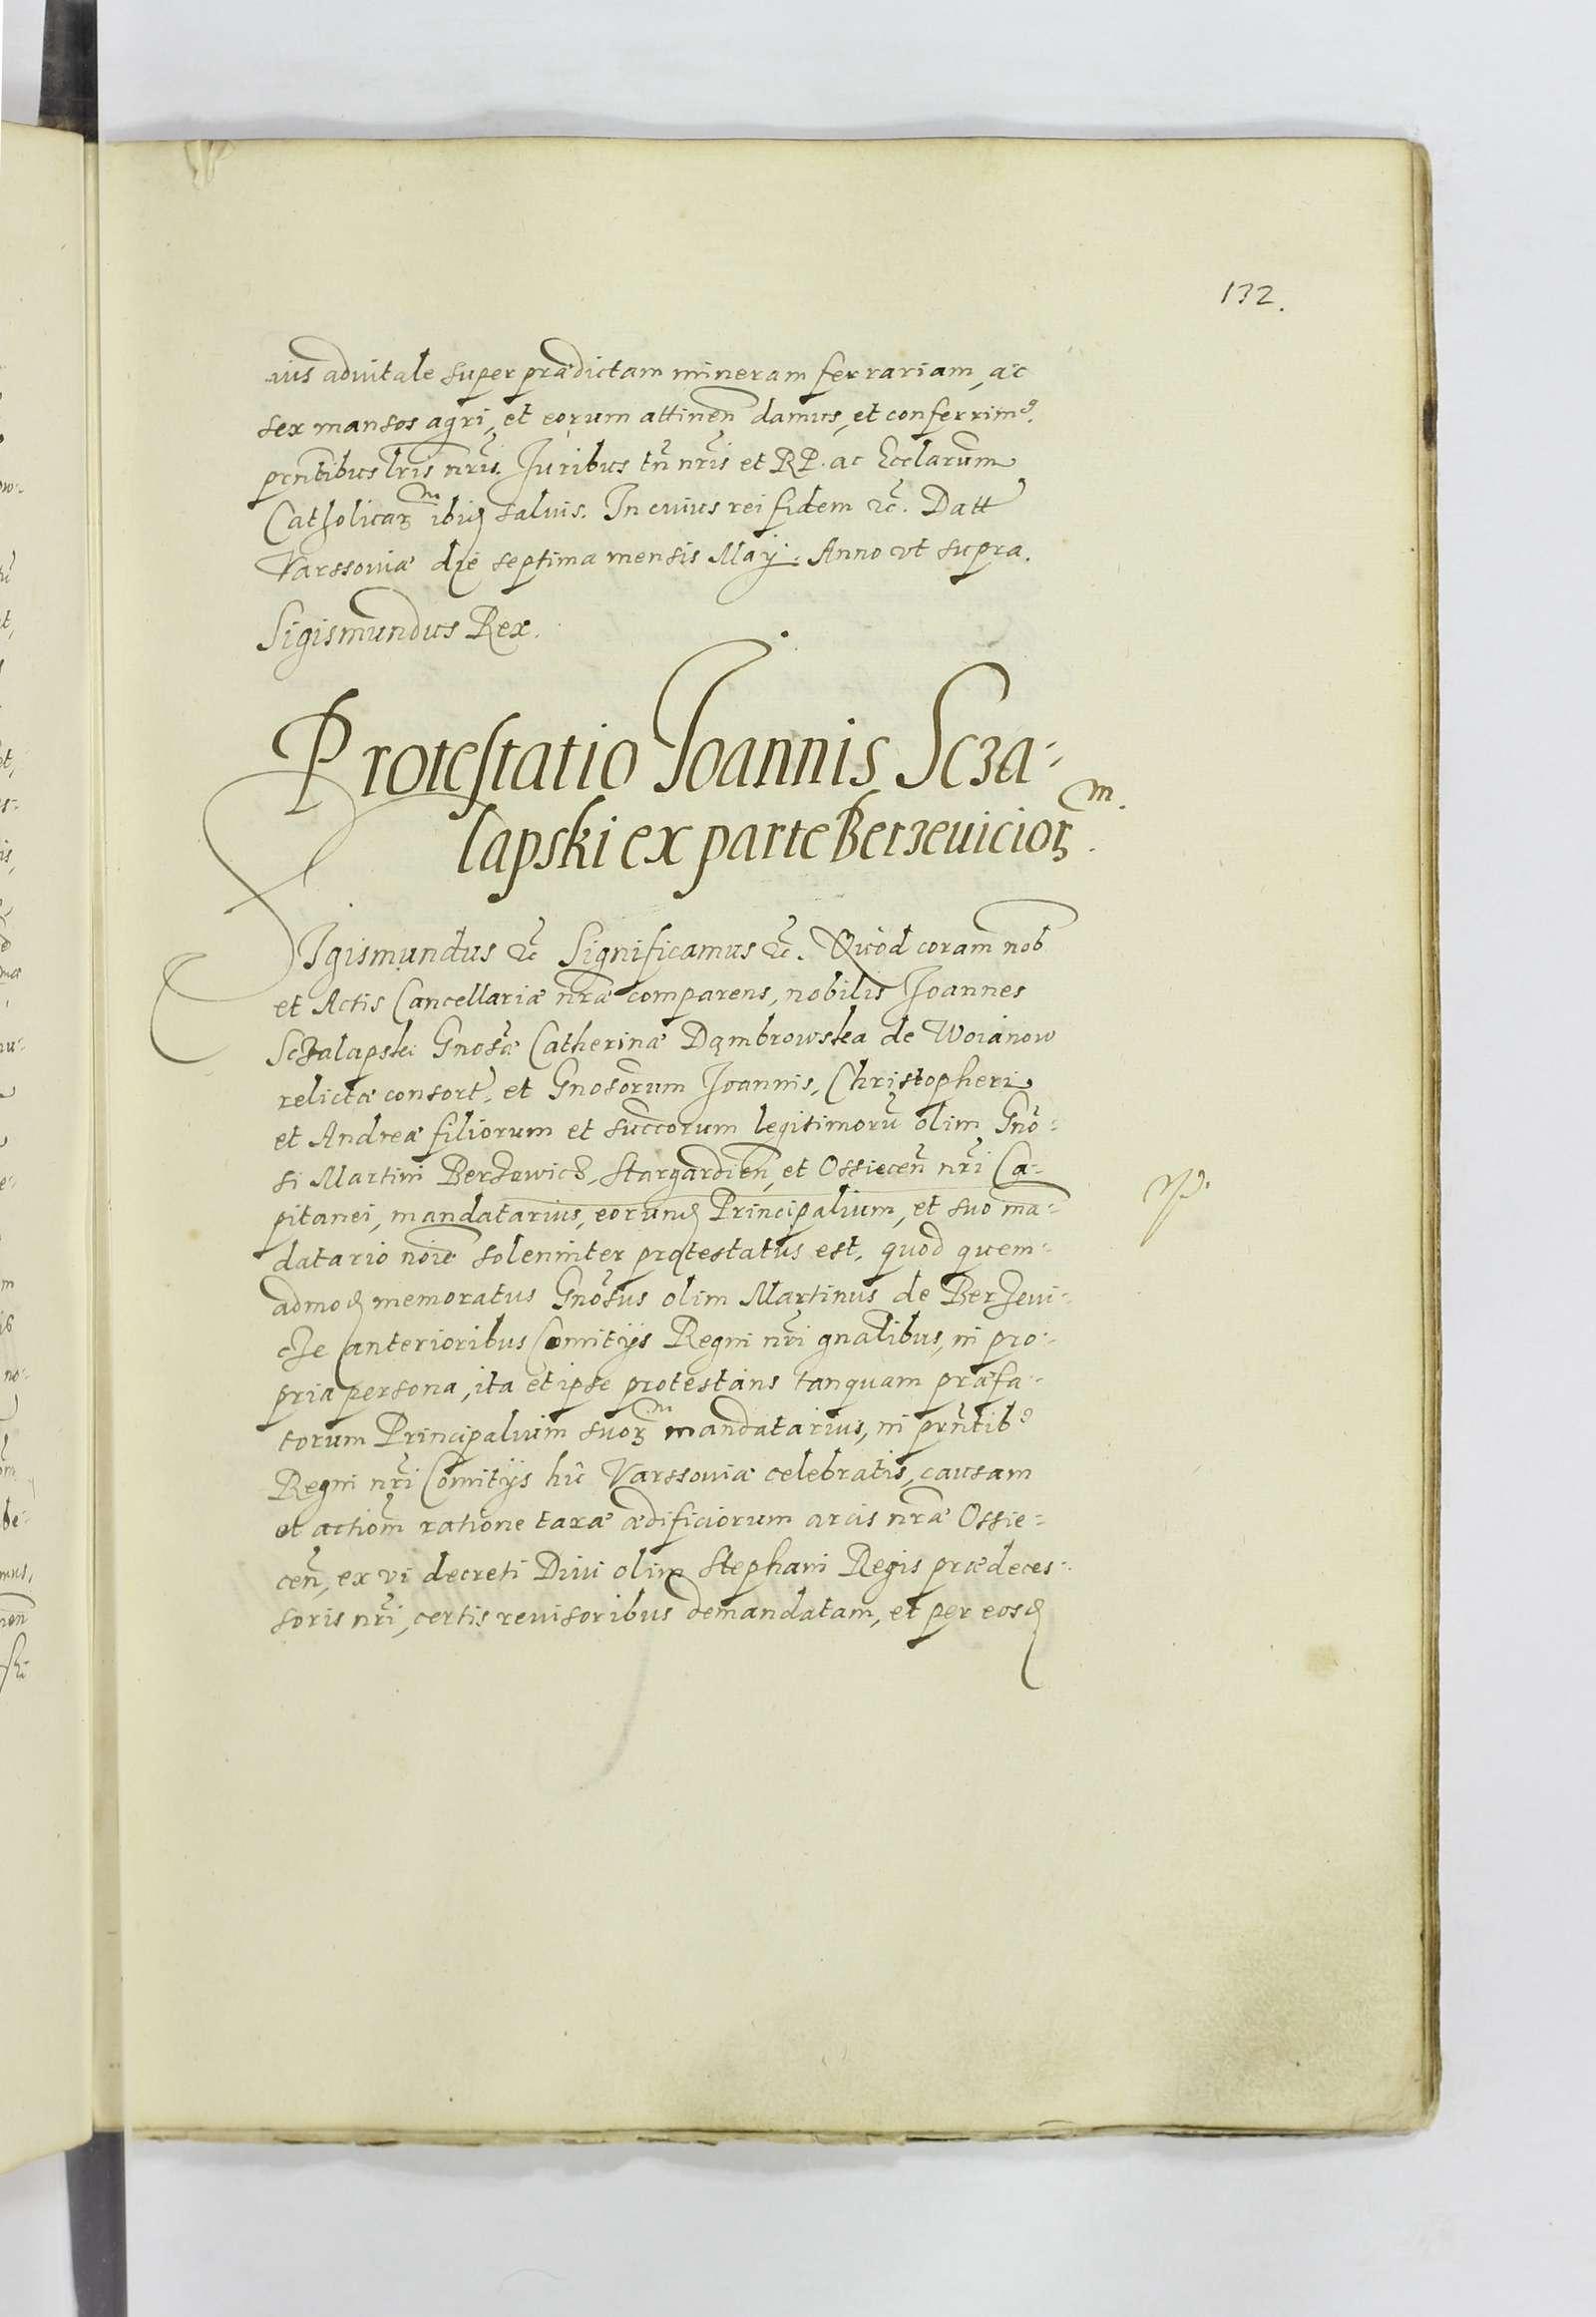 132.
ius aduitale super prædictam mineram ferrariam, ac
sex mansos agri, et eorum attinen̄ damus, et conferrimꝰ
pn̄tibus lr̄is nr̄is. Juribus tn̄ nr̄is et RP. ac Ecclarum
Catholicarꝫ ibiꝗ saluis. In cuius rei fidem ꝛc̄. Datt
Varssouiæ die septima mensis Maÿ. Anno vt supra.
Sigismundus Rex.
Protestatio Joannis Scza-
lapski ex parte Berzeuiciorꝫ m.
SIgismundus ꝛc̄ Significamus ꝛc̄. Quòd coram nob
et Actis Cancellariæ nr̄æ comparens, nobilis Joannes
Sczalapski Gnosæ Catherinæ Dąmbrowska de Woianow
relictæ consort, et Gnosorum Joannis, Christopheri
et Andreæ filiorum et succorum legitimorū olim Gnō-
si Martini Berzewicz, Stargardien̄, et Ossiecen̄ nr̄i Ca-
pitanei, mandatarius, eorunꝗ Principalium, et suo man̄-
datario noīe solenniter protestatus est, quod quem-
admoꝗ memoratus Gnōsus olim Martinus de Berzeui-
cze anterioribus Comitÿs Regni nr̄i gn̄alibus, in pro-
pria persona, ita et ipse protestans tanquam præfa-
torum Principalium suorꝫ m mandatarius, in prn̄tibꝰ
Regni nr̄i Comitÿs hîc Varssouiæ celebratis, causam
et actiōm ratione taxæ ædificiorum arcis nr̄æ Ossie-
cen̄, ex vi decreti Diui olim Stephani Regis prædeces-
soris nr̄i, certis reuisoribus demandatam, et per eosꝗ